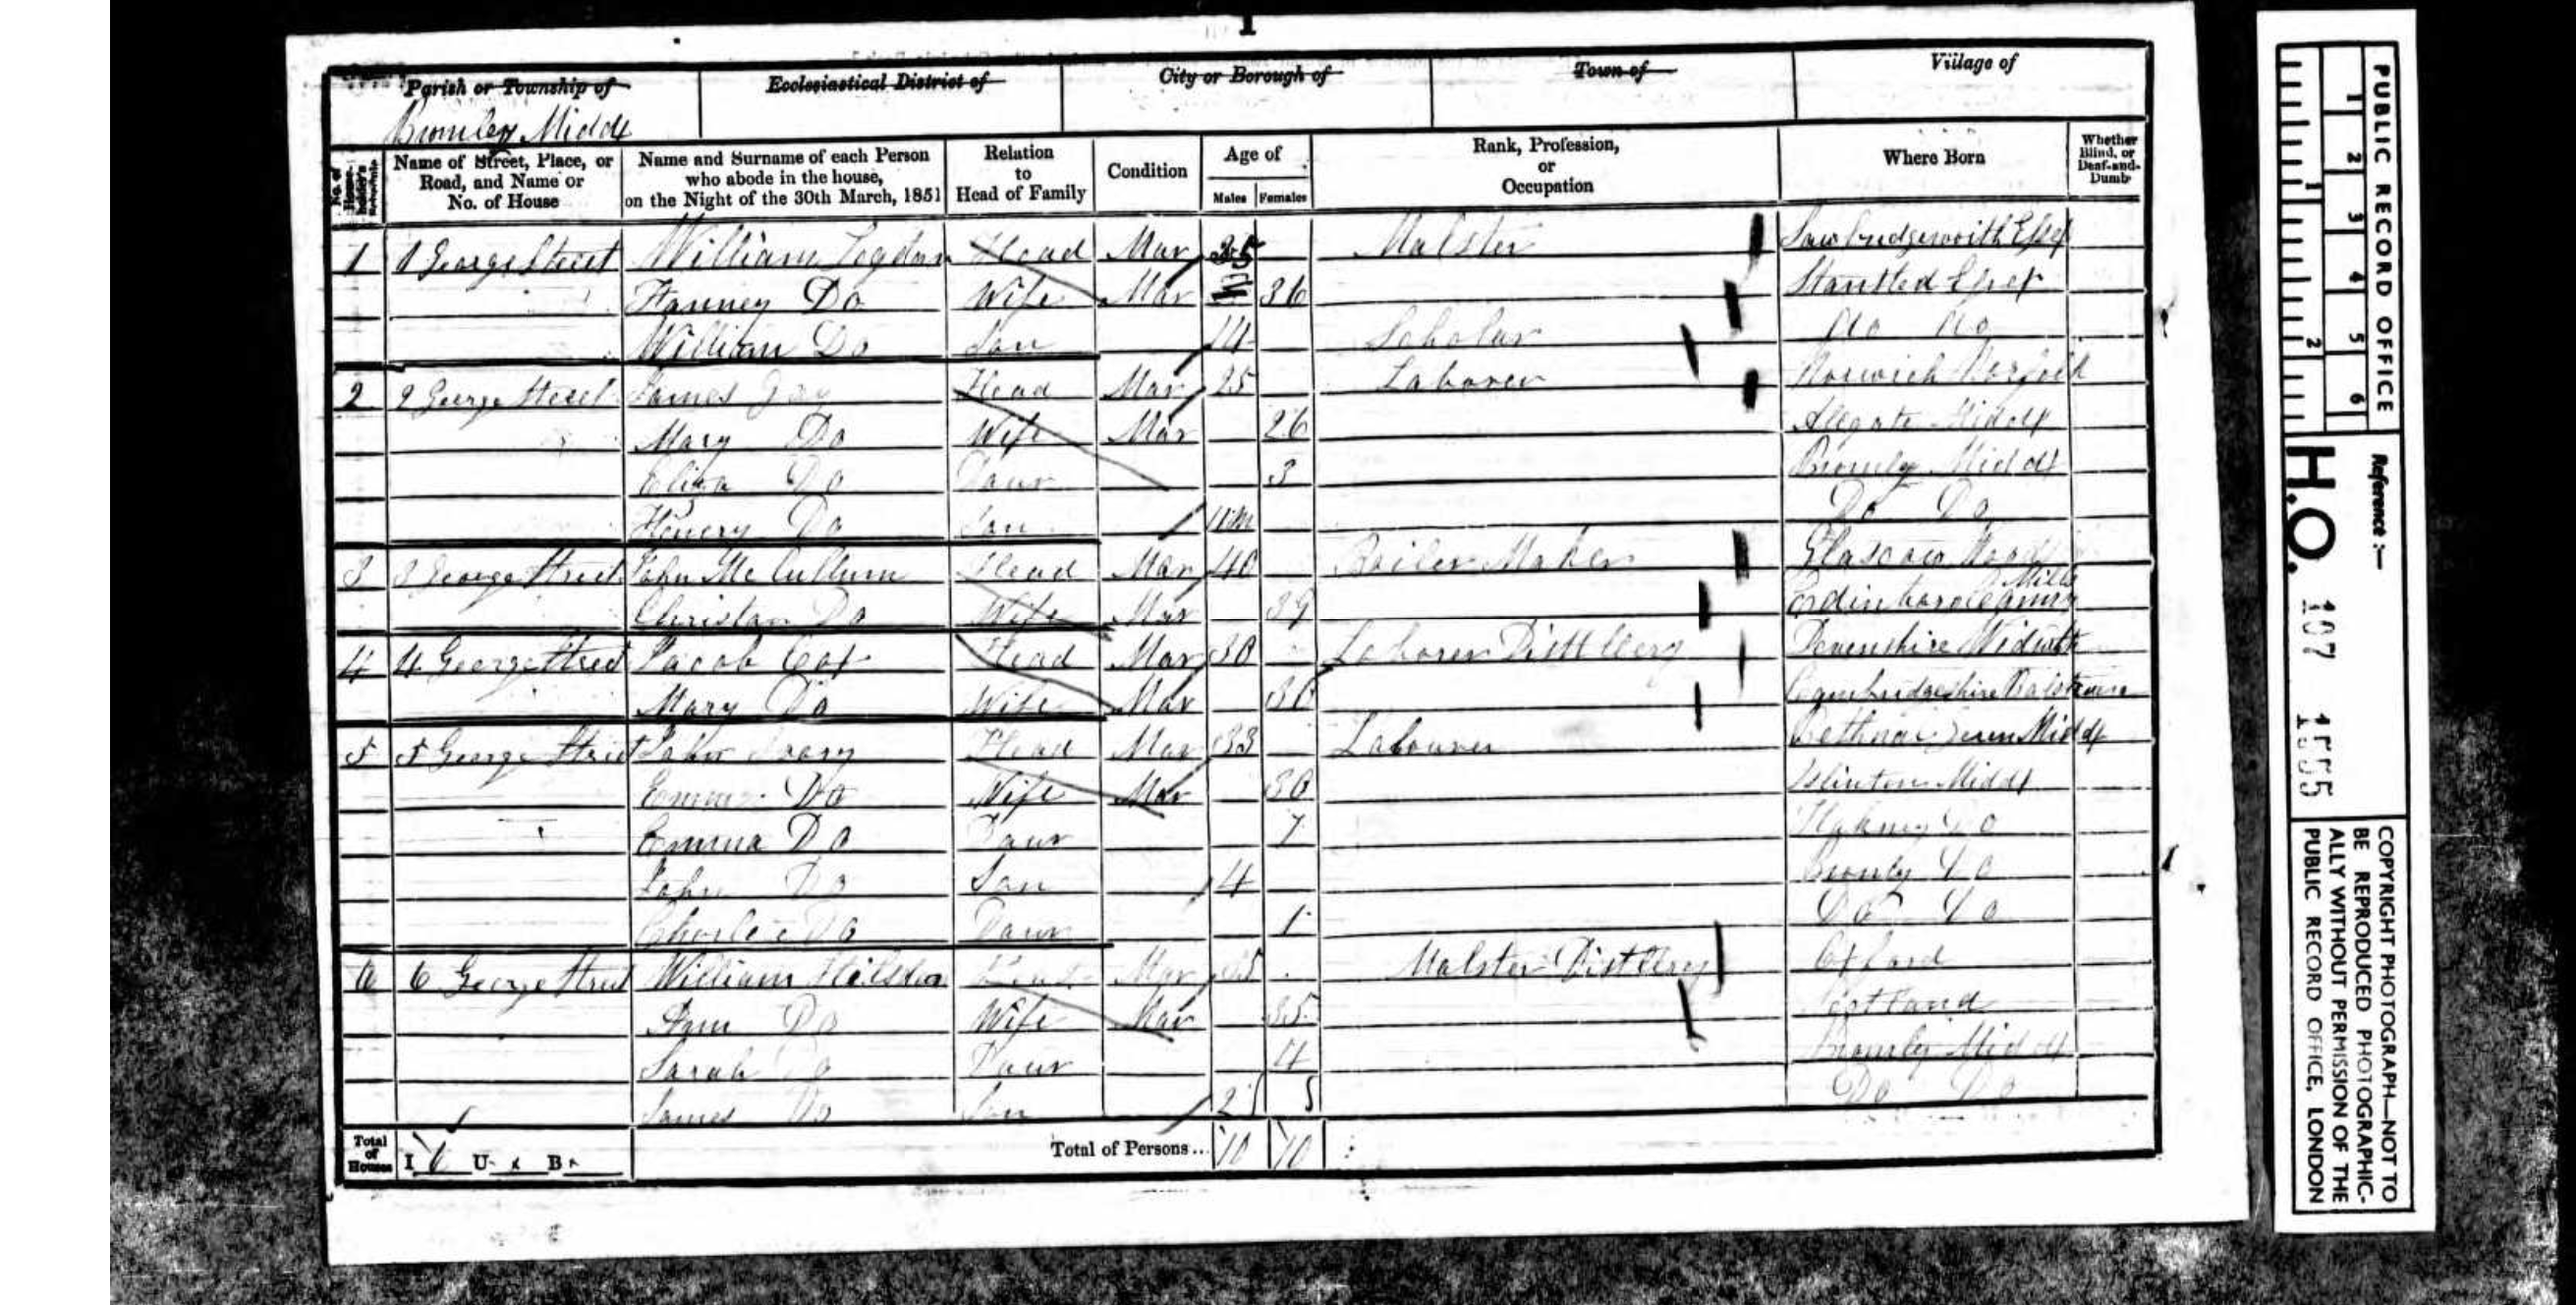 Parish or Township of
Ecclesiastical District of
City or Borough of
Town of
Village of
Bromley Middx
No. of House-holder's Schedule
Name of Street, Place, or Road, and Name or No. of House
Name and Surname of each Person who abode in the house, on the Night of the 30th March, 1851
Relation to Head of Family
Condition
Age of
Males Females
Rank, Profession, or Occupation
Where Born
Whether Blind, or Deaf-and-Dumb
1 1 George Street William Head Mar 35 Malster Sawbridgeworth Essex
Fanney Do Wife Mar 36 Stansted Essex
William Do Son 14 Scholar do do
2 2 George Street James Jay Head Mar 25 Laborer Norwich Norfolk
Mary Do Wife Mar 26 Algate Middx
Eliza Do Daur 3 Bromley Middx
Henery Do Son 11m Do Do
3 3 George Street John Mc Cullum Head Mar 40 Boiler Maker Glascow
Christian Do Wife Mar 39
4 4 George Street Jacob Cox Head Mar 30 Laborer Distillery Devenshire
Mary Do Wife Mar 30 Cambridgeshire
5 5 George Street John Head Mar 33 Labourer Bethnal Green Middx
Emma Do Wife Mar 30 Islinton Middx
Emma Do Daur 7 Hakney Do
John Do Son 4 Bromly Do
Do Daur 1 Do Do
6 6 George Street William Head Mar Malster Distillery Oxford
Ann Do Wife Mar 35
Sarah Do Daur 4 Bromley Middx
James Do Son 2 Do Do
Total of Houses I 6 U B
Total of Persons... 10 10
PUBLIC RECORD OFFICE
1 2 3 4 5 6
1 2
Reference :—
H.O. 107 1555
COPYRIGHT PHOTOGRAPH—NOT TO
BE REPRODUCED PHOTOGRAPHIC-
ALLY WITHOUT PERMISSION OF THE
PUBLIC RECORD OFFICE, LONDON